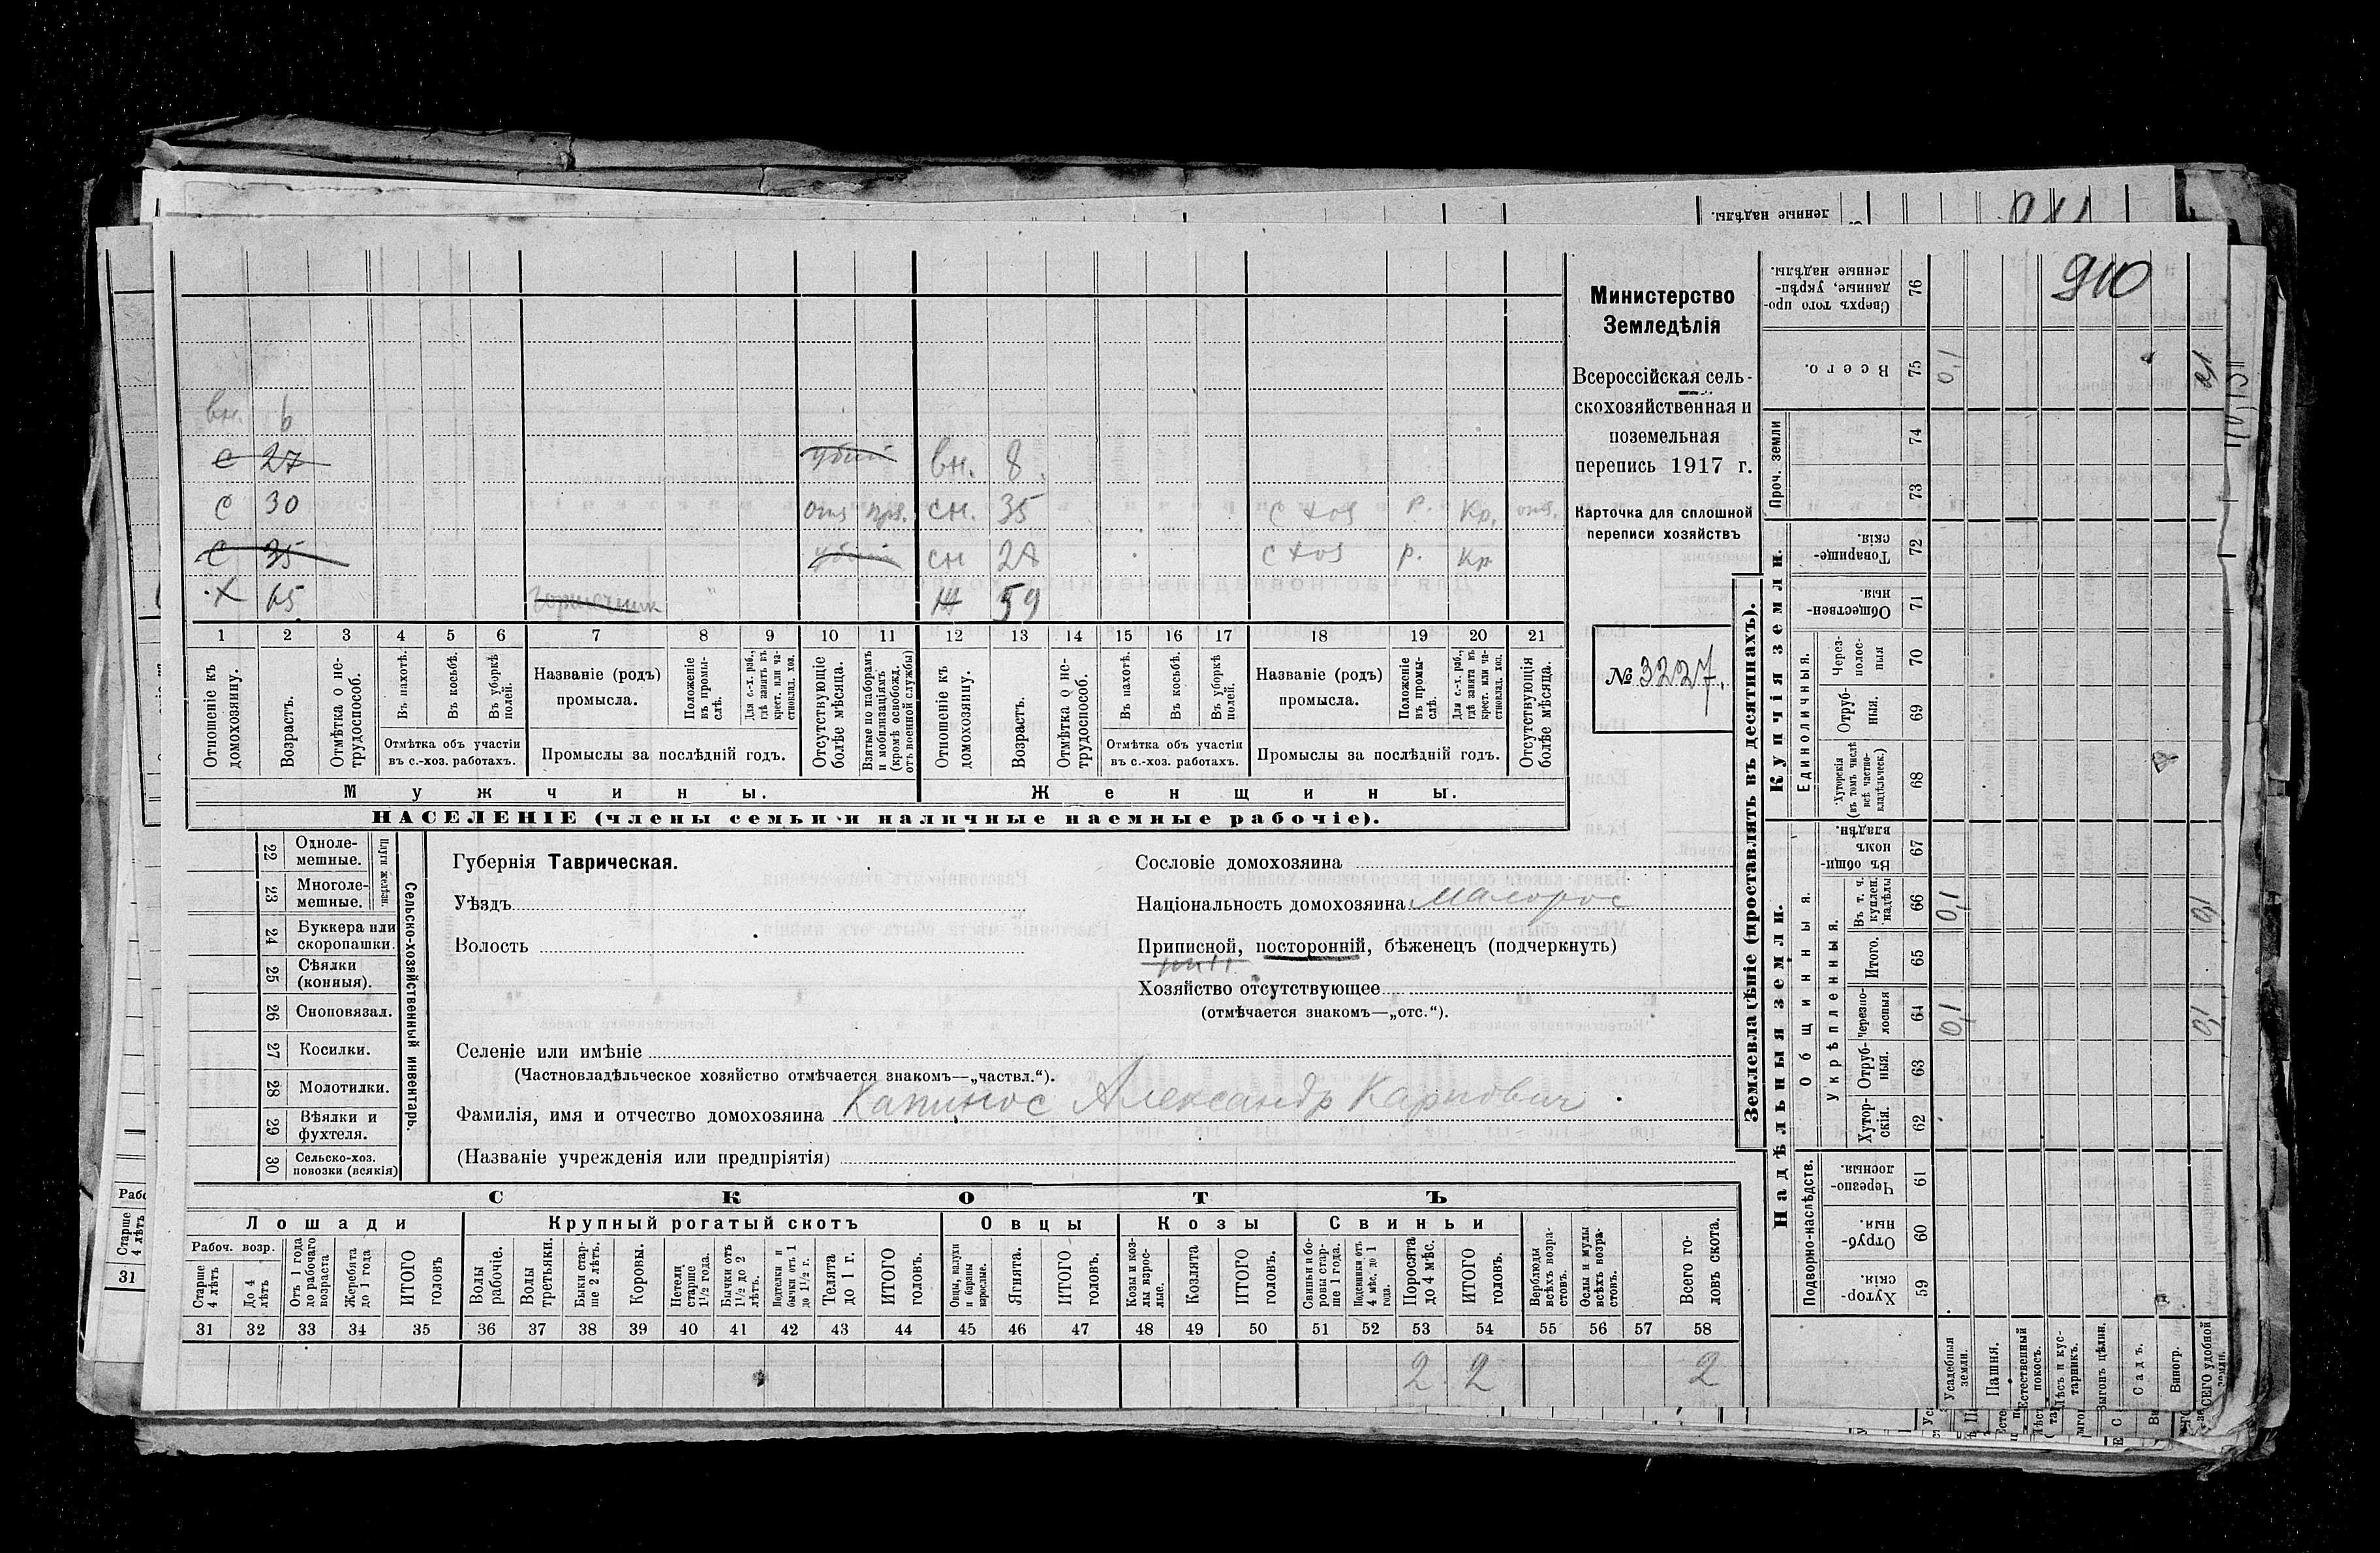 910
вн. 6
с 27 убит вн. 8.
с 30 отс пріз. сн. 35 с хоз р. Кр. отс.
с 35 убит сн 28 с хоз р. Кр
х 65 ж 59
1 2 3 4 5 6 7 8 9 10 11 12 13 14 15 16 17 18 19 20 21
Отношеніе къ домохозяину.
Возрастъ.
Отмѣтка о нетрудоспособ.
Въ пахотѣ.
Въ косьбѣ.
Въ уборкѣ полей.
Отмѣтка объ участіи
въ с.-хоз. работахъ.
Названіе (родъ)
промысла.
Положеніе въ промыслѣ.
Для с.-х. раб., гдѣ занятъ въ крест. или частновлад. хоз.
Промыслы за послѣдній годъ.
Отсутствующіе болѣе мѣсяца.
Взятые по наборамъ и мобилизаціямъ (кромѣ освобожд. отъ военной службы)
Отношеніе къ домохозяину.
Возрастъ.
Отмѣтка о нетрудоспособ.
Въ пахотѣ.
Въ косьбѣ.
Въ уборкѣ полей.
Отмѣтка объ участіи
въ с.-хоз. работахъ.
Названіе (родъ)
промысла.
Положеніе въ промыслѣ.
Для с.-х. раб., гдѣ занята въ крест. или частновлад. хоз.
Промыслы за послѣдній годъ.
Отсутствующія болѣе мѣсяца.
Мужчины. Женщины.
НАСЕЛЕНІЕ (члены семьи и наличные наемные рабочіе).
Министерство
Земледѣлія
Всероссійская сель-
скохозяйственная и
поземельная
перепись 1917 г.
Карточка для сплошной
переписи хозяйствъ
№ 3227.
22 Одноле-
мешные.
23 Многоле-
мешные.
Плуги желѣзн.
24 Буккера или
скоропашки.
25 Сѣялки
(конныя).
26 Сноповязал.
27 Косилки.
28 Молотилки.
29 Вѣялки и
фухтеля.
30 Сельско-хоз.
повозки (всякія)
Сельско-хозяйственный инвентарь.
Губернія Таврическая.
Уѣздъ
Волость
Сословіе домохозяина
Національность домохозяина малорос
Приписной, посторонній, бѣженецъ (подчеркнуть)
Хозяйство отсутствующее
(отмѣчается знакомъ—„отс.“).
Селеніе или имѣніе
(Частновладѣльческое хозяйство отмѣчается знакомъ—„частвл.“).
Фамилія, имя и отчество домохозяина Капинос Александр Карпович
(Названіе учрежденія или предпріятія)
СКОТЪ
Лошади Крупный рогатый скотъ Овцы Козы Свиньи
Рабоч. возр.
Старше 4 лѣтъ
До 4 лѣтъ
Отъ 1 года до рабочаго возраста
Жеребята до 1 года
ИТОГО головъ
Волы рабочіе.
Волы третьяки.
Быки старше 2 лѣтъ.
Коровы.
Нетели старше 1½ года.
Бычки отъ 1½ до 2 лѣтъ.
Подтелки и бычки отъ 1 до 1½ г.
Телята до 1 г.
ИТОГО головъ.
Овцы, валухи и бараны взрослые.
Ягнята.
ИТОГО головъ.
Козы и козлы взрослые.
Козлята
ИТОГО головъ.
Свиньи и боровы старше 1 года.
Подсвинки отъ 4 мѣс. до 1 года.
Поросята до 4 мѣс.
ИТОГО головъ.
Верблюды всѣхъ возрастовъ.
Ослы и мулы всѣхъ возрастовъ.
Всего головъ скота.
31 32 33 34 35 36 37 38 39 40 41 42 43 44 45 46 47 48 49 50 51 52 53 54 55 56 57 58
2 2 2
Землевладѣніе (проставлять въ десятинахъ).
Купчія земли.
Надѣльныя земли.
Сверхъ того проданные, укрѣпленные надѣлы. 76
Всего. 75 0,1 0,1
Проч. земли
74
73
Товарищескія. 72
Общественныя. 71
Единоличныя.
Черезполосныя 70
Отрубныя. 69
Хуторскія (въ томъ числѣ всѣ частновладѣльческ.) 68
Общинныя.
Въ общинномъ владѣн. 67
Укрѣпленныя.
Въ т. ч. куплен. надѣлы 66 0,1 0,1
Итого. 65
Черезполосныя 64 0,1 0,1
Отрубныя. 63
Хуторскія. 62
Подворно-наслѣдств.
Черезполосныя. 61
Отрубныя. 60
Хуторскія. 59
Усадебныя земли.
Пашня.
Естественный покосъ.
Лѣсъ и кустарникъ.
Выгонъ цѣлин.
Садъ.
Виногр.
ВСЕГО удобной земли.
ленные надѣлы.
Старше 4 лѣтъ
31